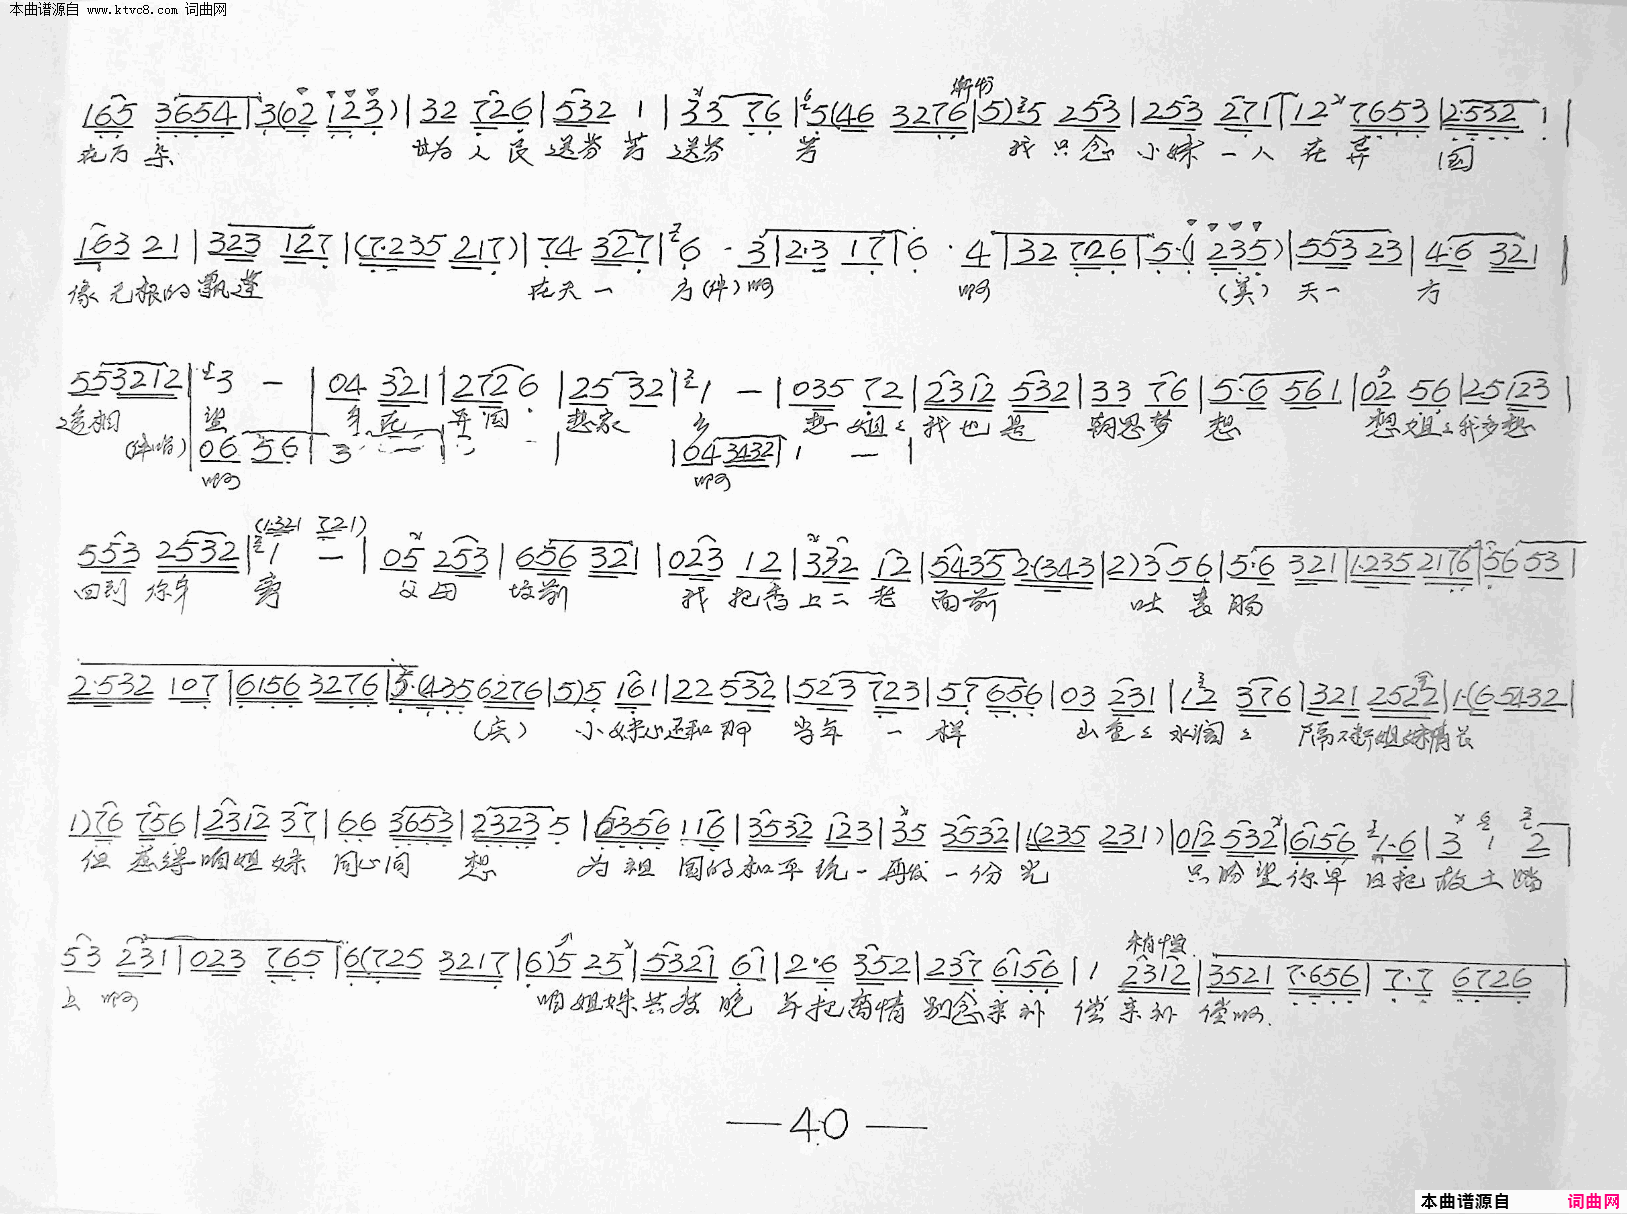 本曲谱源自 www.ktvc8.com 词曲网
165 3654 3(02 123) | 32 726 | 532 1 | 33 76 | 5(46 3276 | 5)5 253 | 253 271 | 12 7653 | 2·532 1 |
花万朵 为人民送芬芳送芬芳 我只念小妹一人在异国
163 21 | 323 127 | (7·235 217) | 74 327 | 6 · 3 | 2·3 17 | 6 · 4 | 32 726 | 5·(1 235) | 553 23 | 4·6 321 |
像无根的飘蓬 在天一方(伴)啊 啊 (美) 天一方
553212 | 3 — | 04 321 | 2726 | 25 32 | 1 — | 035 72 | 2312 532 | 33 76 | 5·6 561 | 02 56 | 25123 |
遥相望 身在异国 想家乡 想姐々我也是朝思梦想 想姐々我多想
(伴唱) 06 56 | 3 | 043432 | 1 — |
啊 啊
(1·321 721)
553 2532 | 1 — | 05 253 | 656 321 | 023 12 | 332 12 | 5435 2(343 | 2)3 56 | 5·6 321 | 1·235 2176 | 56 53 |
回到你身旁 父母坟前 我把香上二老面前 吐衷肠
2·532 107 | 6156 3276 | 5·(4356276 | 5)5 161 | 22 532 | 523 723 | 57 656 | 03 231 | 12 376 | 321 2522 | 1·(65432 |
(庆) 小妹心还和那当年一样 山重々水阔々隔不断姐妹情长
1)76 756 | 2312 37 | 66 3653 | 2323 5 | 6356 116 | 3532 123 | 35 3532 | 1(235 231) | 012 532 | 6156 1·6 | 3 1 2 |
但愿得咱姐妹同心同想 为祖国的和平统一再发一份光 只盼望你早日把故土踏
53 231 | 023 765 | 6(725 3217 | 6)5 25 | 5321 61 | 2·6 352 | 237 6156 | 1 2312 | 3521 7·656 | 7·7 6726 |
上啊 咱姐妹共 把离情别念来补偿来补偿啊
稍慢
—40—
本曲谱源自 词曲网